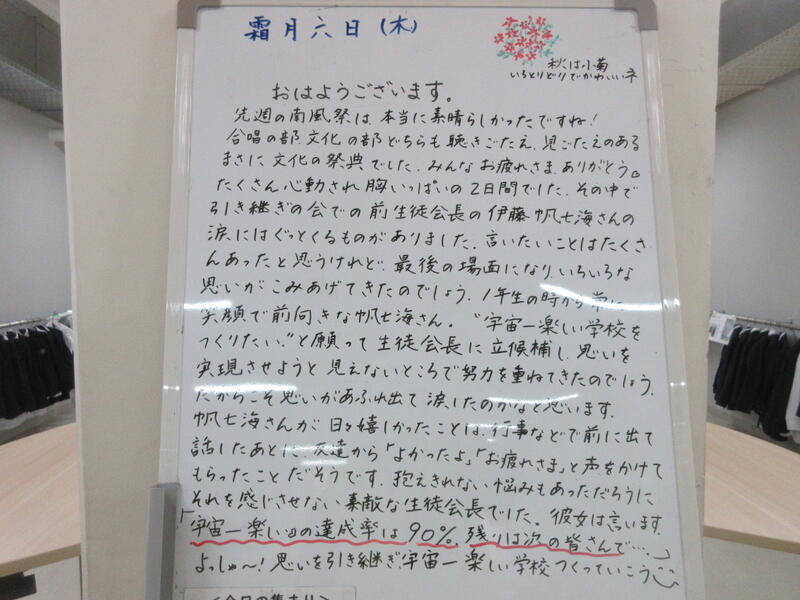 霜月六日(木)
秋は小菊
いろとりどりでかわいいネ
おはようございます。
先週の南風祭は、本当に素晴らしかったですね!
合唱の部、文化の部どちらも聴きごたえ、見ごたえのある
まさに文化の祭典でした。みんなお疲れさま、ありがとう。
たくさん心動され胸いっぱいの2日間でした。その中で
引き継ぎの会での前生徒会長の伊藤帆七海さんの
涙にはぐっとくるものがありました。言いたいことはたくさ
んあったと思うけれど、最後の場面になり、いろいろな
思いがこみあげてきたのでしょう。1年生の時から常に
笑顔で前向きな帆七海さん。"宇宙一楽しい学校を
つくりたい"と願って生徒会長に立候補し、思いを
実現させようと見えないところで努力を重ねてきたのでしょう。
だからこそ思いがあふれ出て涙したのかなと思います。
帆七海さんが日々嬉しかったことは、行事などで前に出て
話したあとに、友達から「よかったよ」「お疲れさま」と声をかけて
もらったことだそうです。抱えきれない悩みもあっただろうに
それを感じさせない素敵な生徒会長でした。彼女は言います。
「宇宙一楽しいの達成率は90%。残りは次の皆さんで…」
よっしゃ〜!思いを引き継ぎ、宇宙一楽しい学校つくっていこう
<今日の集まり>